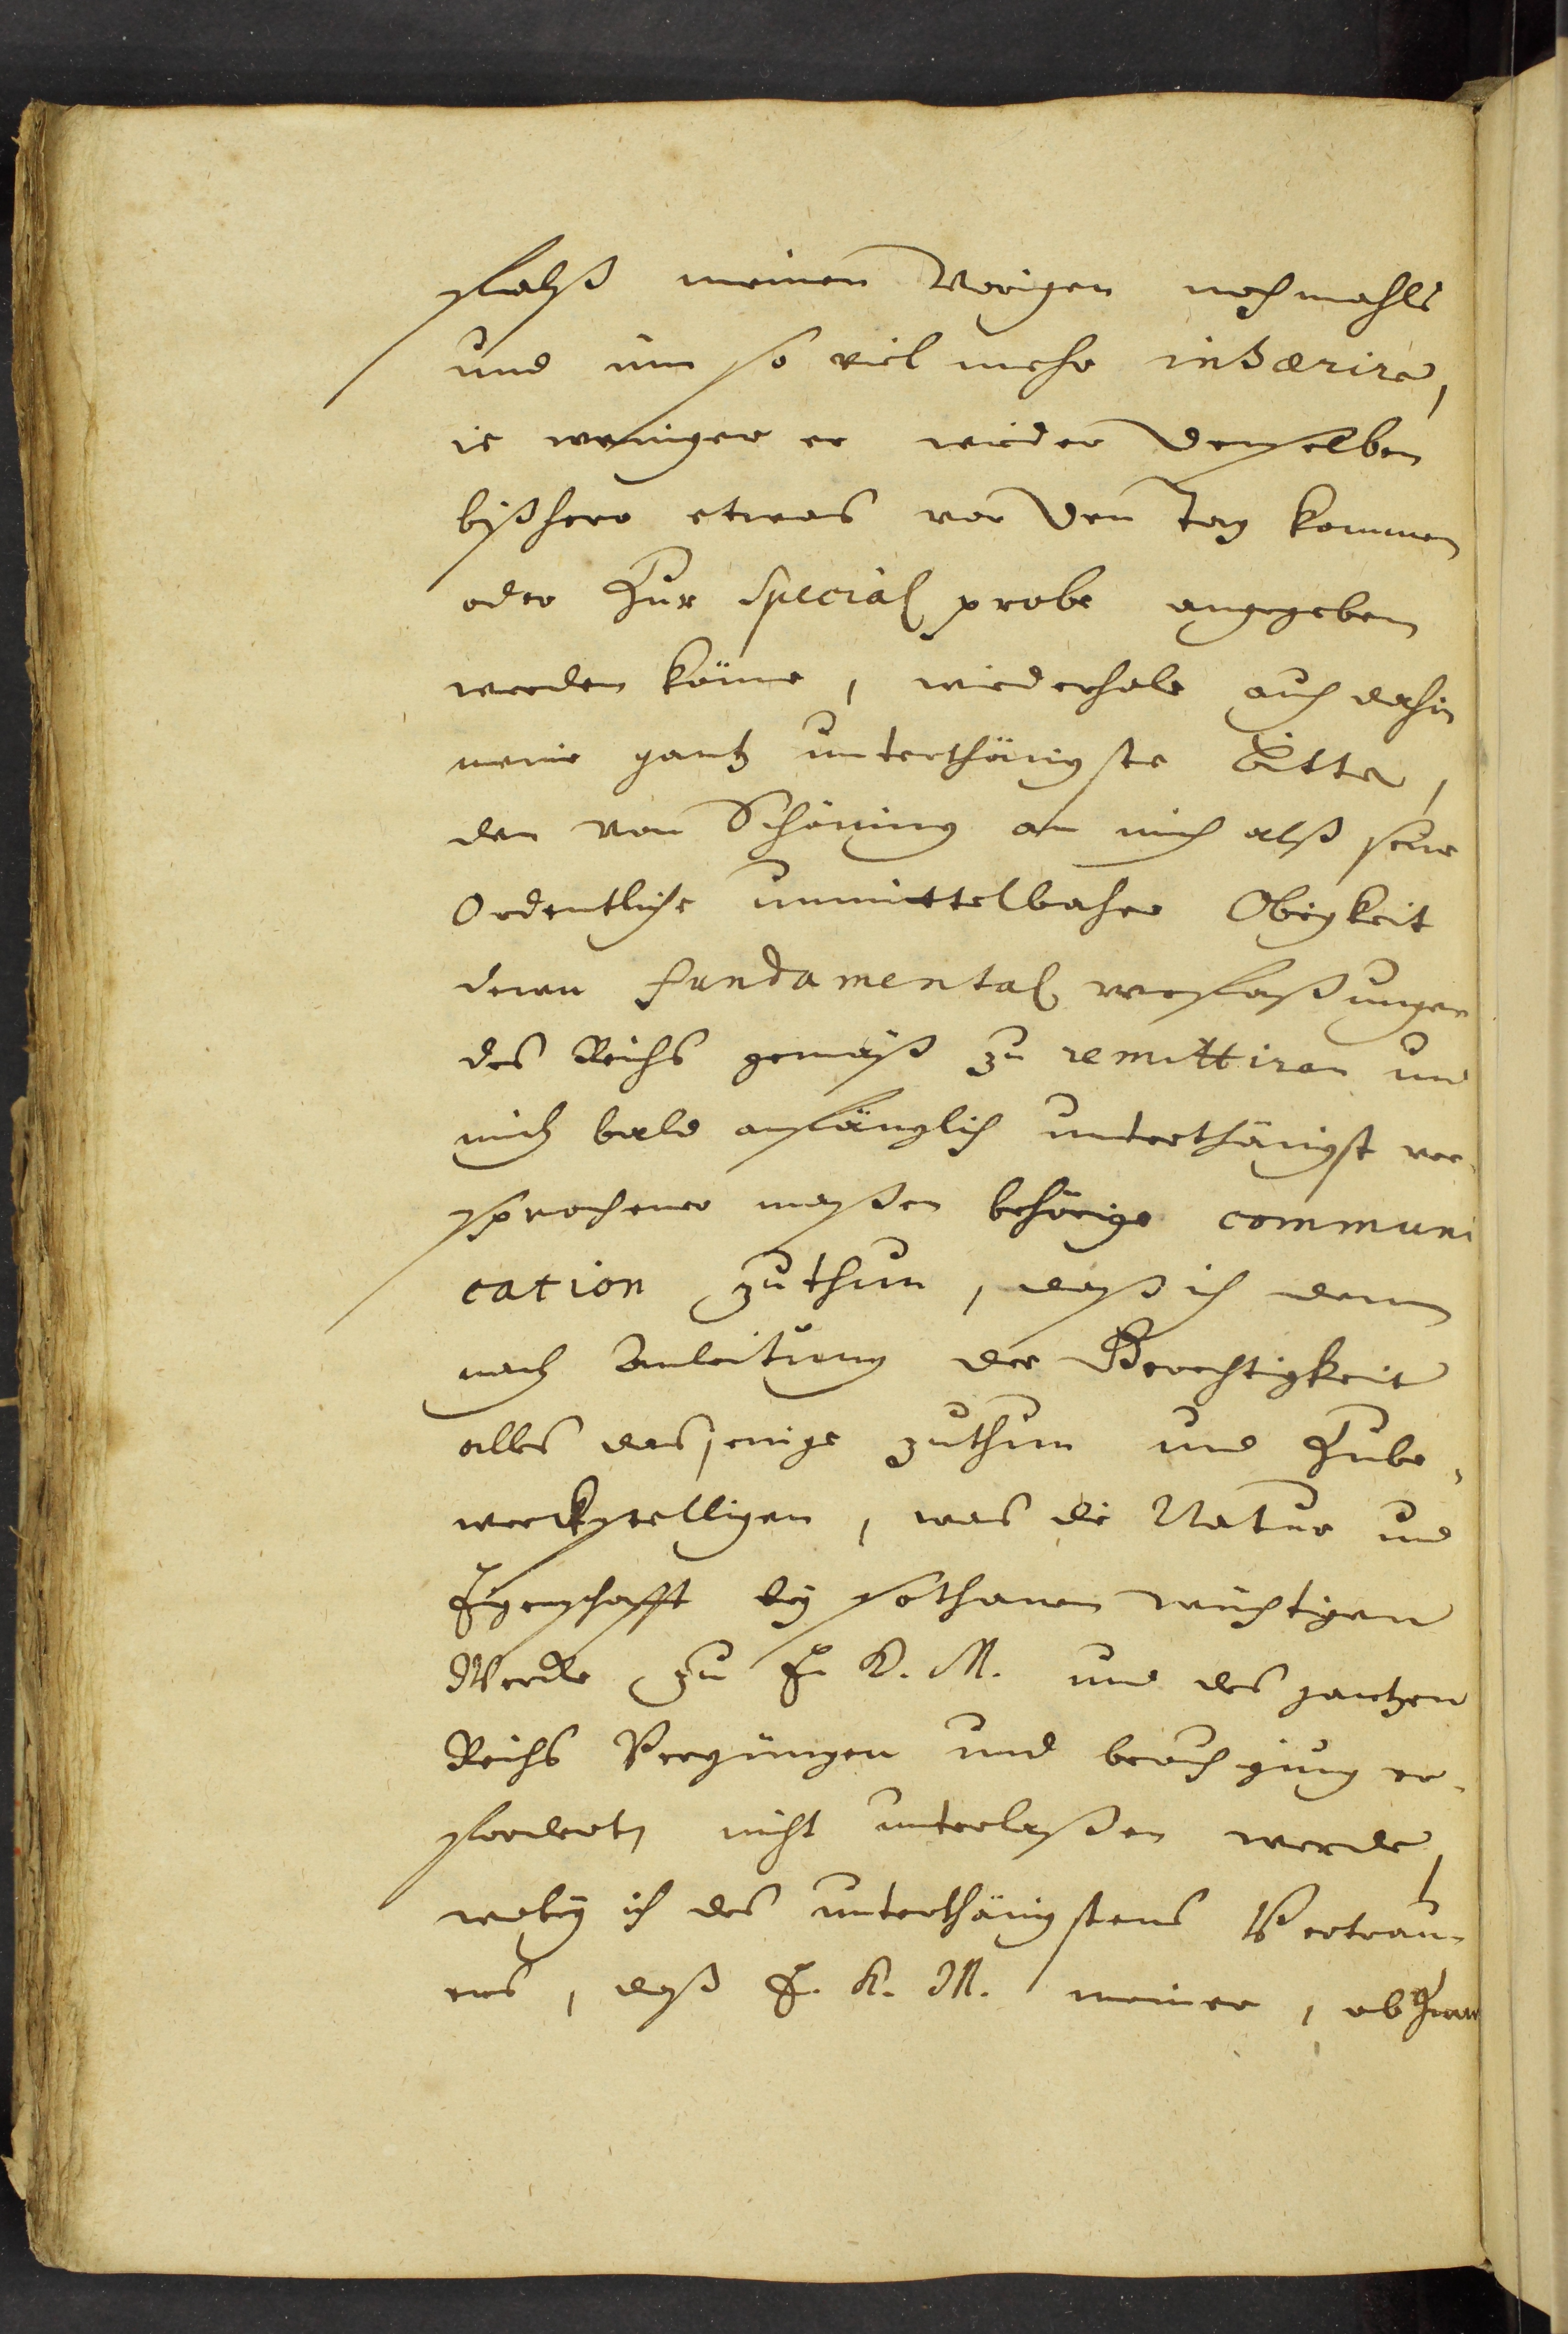 falß meinen Vorigen nochmahls
und um so viel mehr inhærire,
ie weniger er wieder denselben
bißhero etwas vor den Tag kommen
oder Zur Special probe angegeben
werden könne, wiederhole auch dahin
meine gantz unterthänigste Bitte,
den von Schöning an mich alß seine
Ordentliche unmittelbahre Obrigkeit
denen fundamental verfaßungen
des Reichs gemäß zu remittiren und
mich bald anfänglich unterthänigst ver-
sprochener maßen behörige communi
cation zuthun, daß ich denn
nach Anleitung der Gerechtigkeit
alles dasjenige zuthun und Zube-
werckstelligen, was die Natur und
Eigenschafft bey sothanen wichtigen
Wercke zu E. K. M. und des gantzen
Reichs Vergnügen und beruhigung er-
fordert, nicht unterlaßen werde,
wobey ich des unterthänigstens Vertrau-
ens, daß E. K. M. meiner, ob Zwar